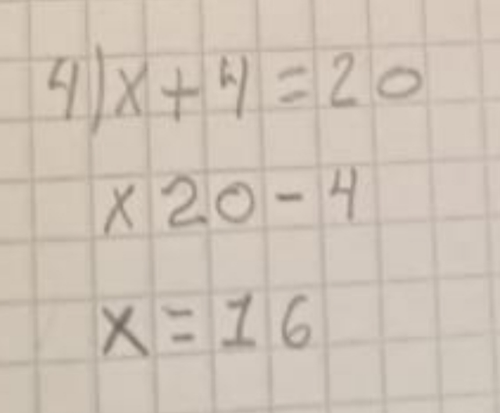 4) x + 4 = 20
x 20 - 4
x = 16